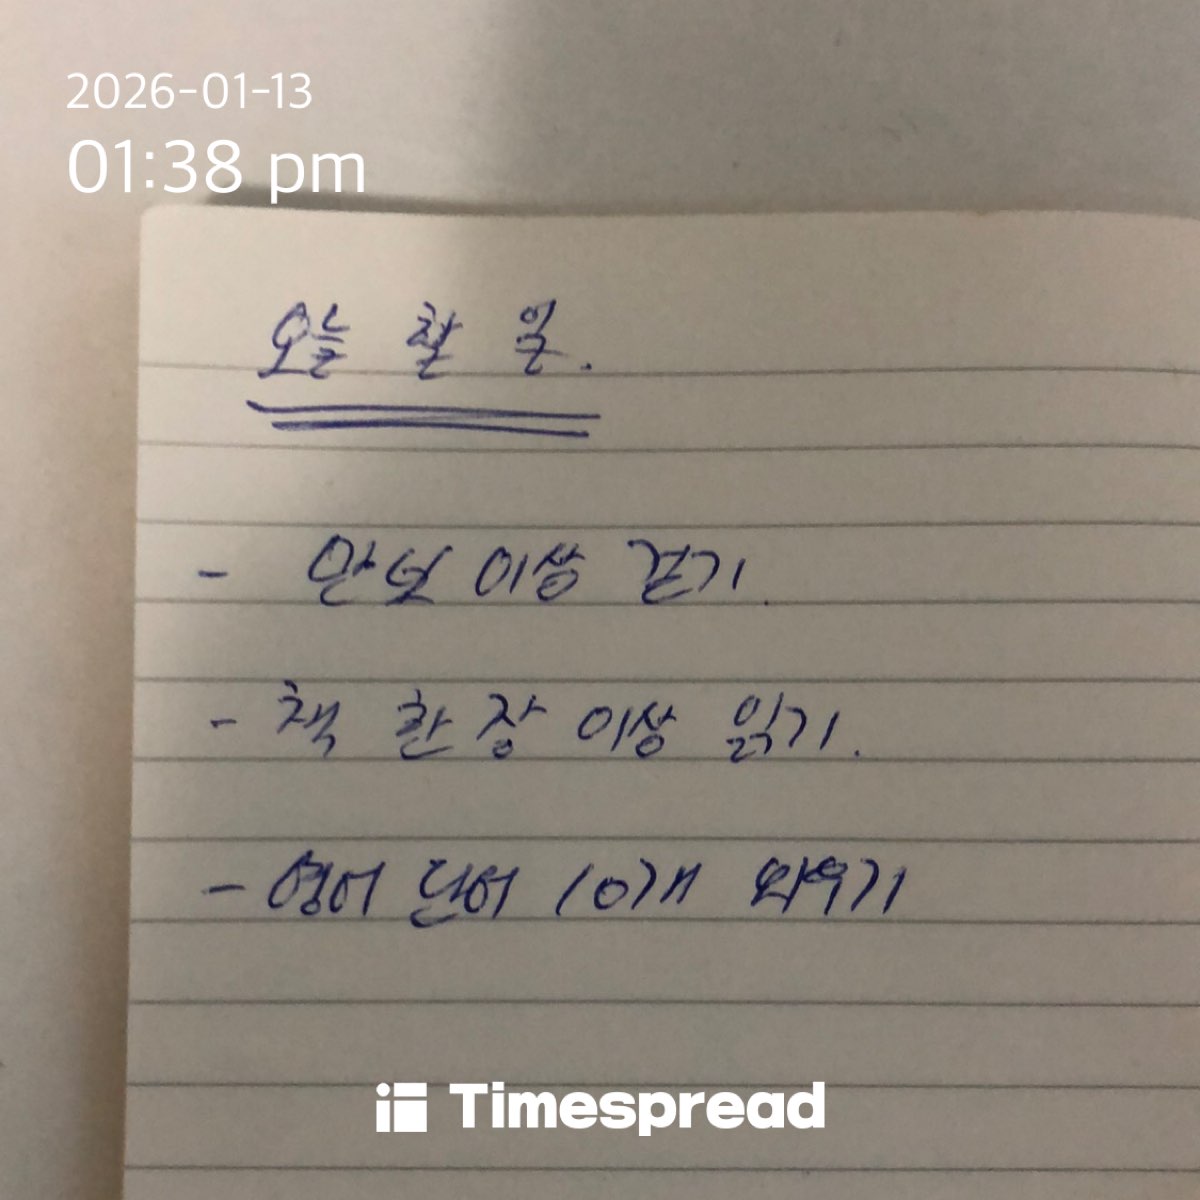 2026-01-13
01:38 pm
오늘 할 일.
- 만보 이상 걷기.
- 책 한 장 이상 읽기.
- 영어 단어 10개 외우기
Timespread